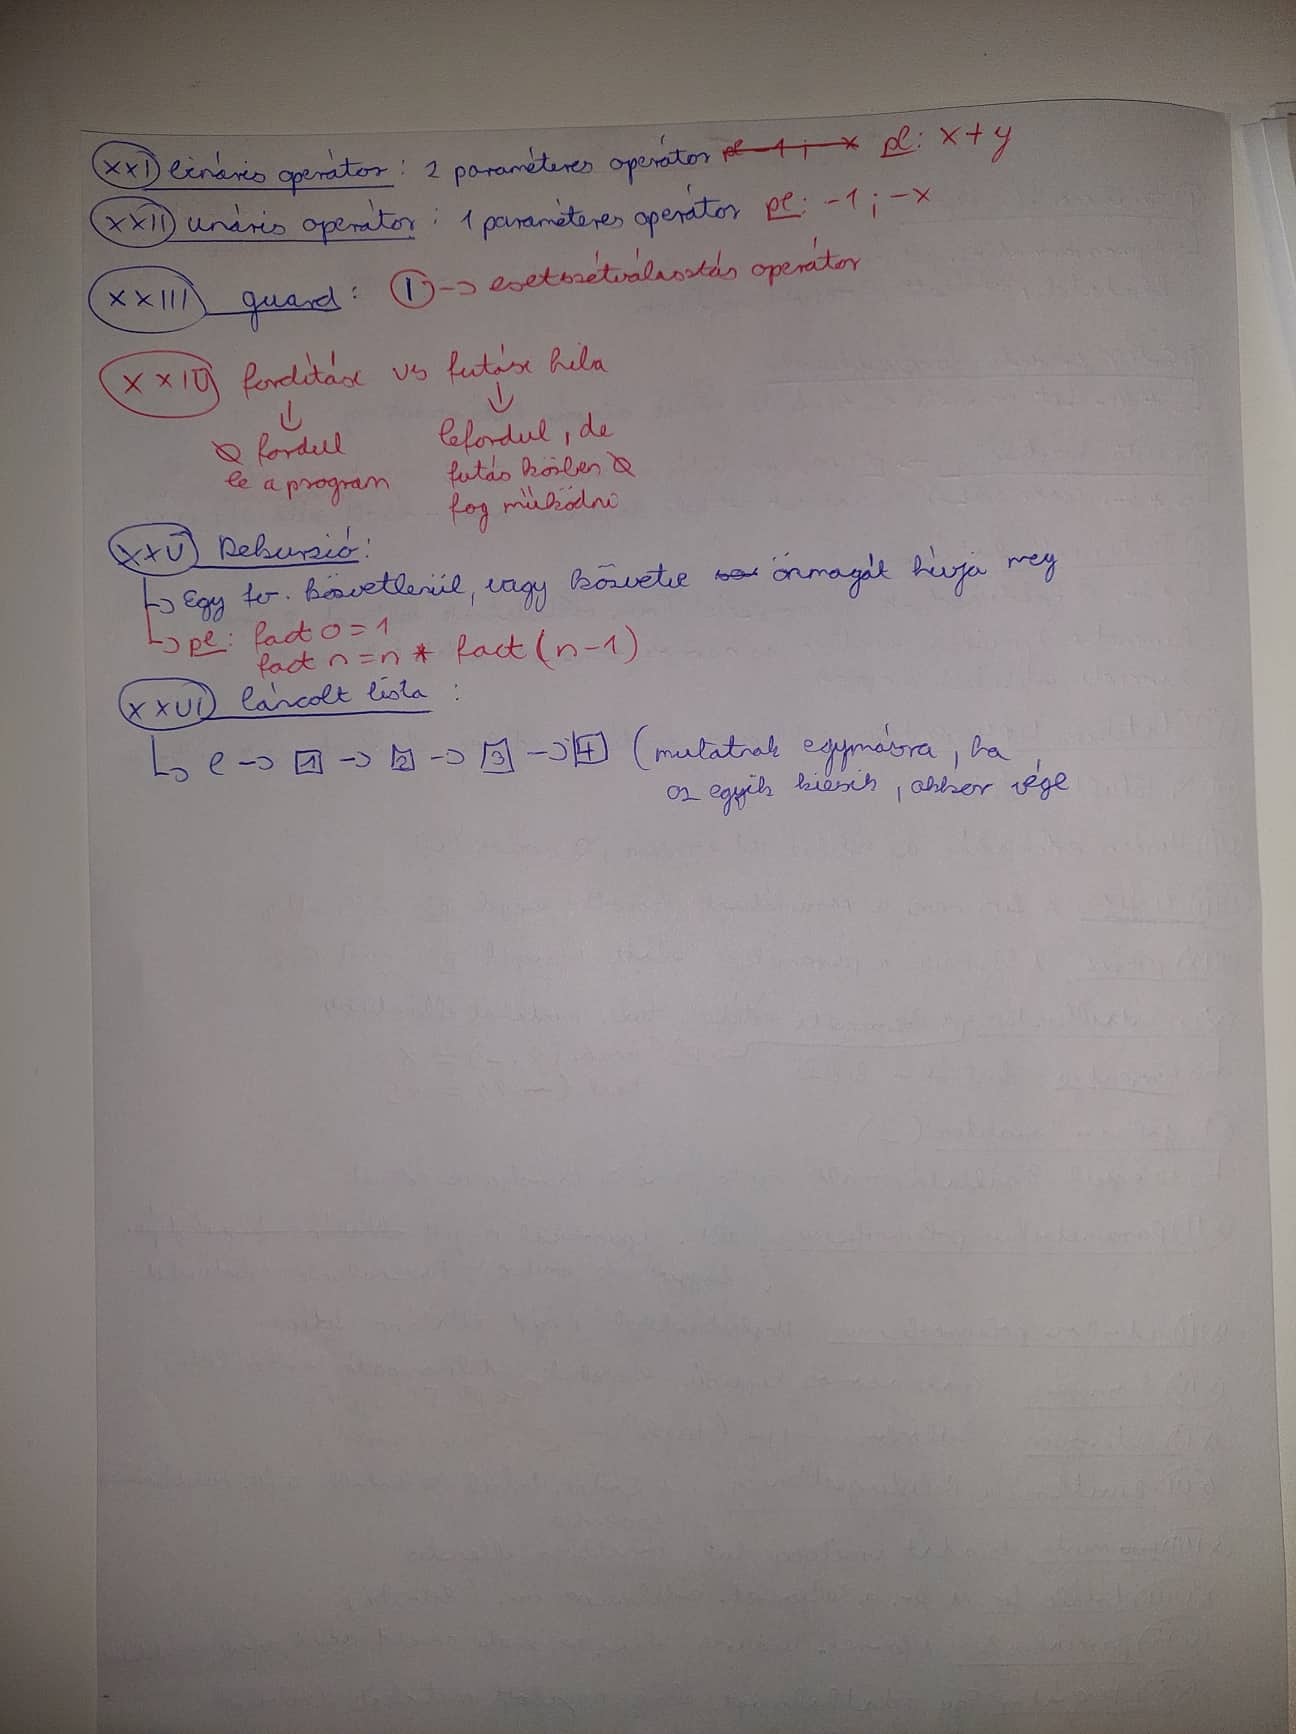 XXI bináris operátor: 2 paraméteres operátor pl: x+y
XXII unáris operátor: 1 paraméteres operátor pl: -1; -x
XXIII guard: | -> esetszétválasztás operátor
XXIV fordítási vs futási hiba
↓ ↓
∅ fordul lefordul, de
le a program futás közben ∅
fog működni
XXV Rekurzió:
↳ Egy fv. közvetlenül, vagy közvetve önmagát hívja meg
↳ pl: fact 0 = 1
fact n = n * fact (n-1)
XXVI láncolt lista:
↳ e -> 1 -> 2 -> 3 -> 4 (mutatnak egymásra, ha
az egyik kiesik, akkor vége